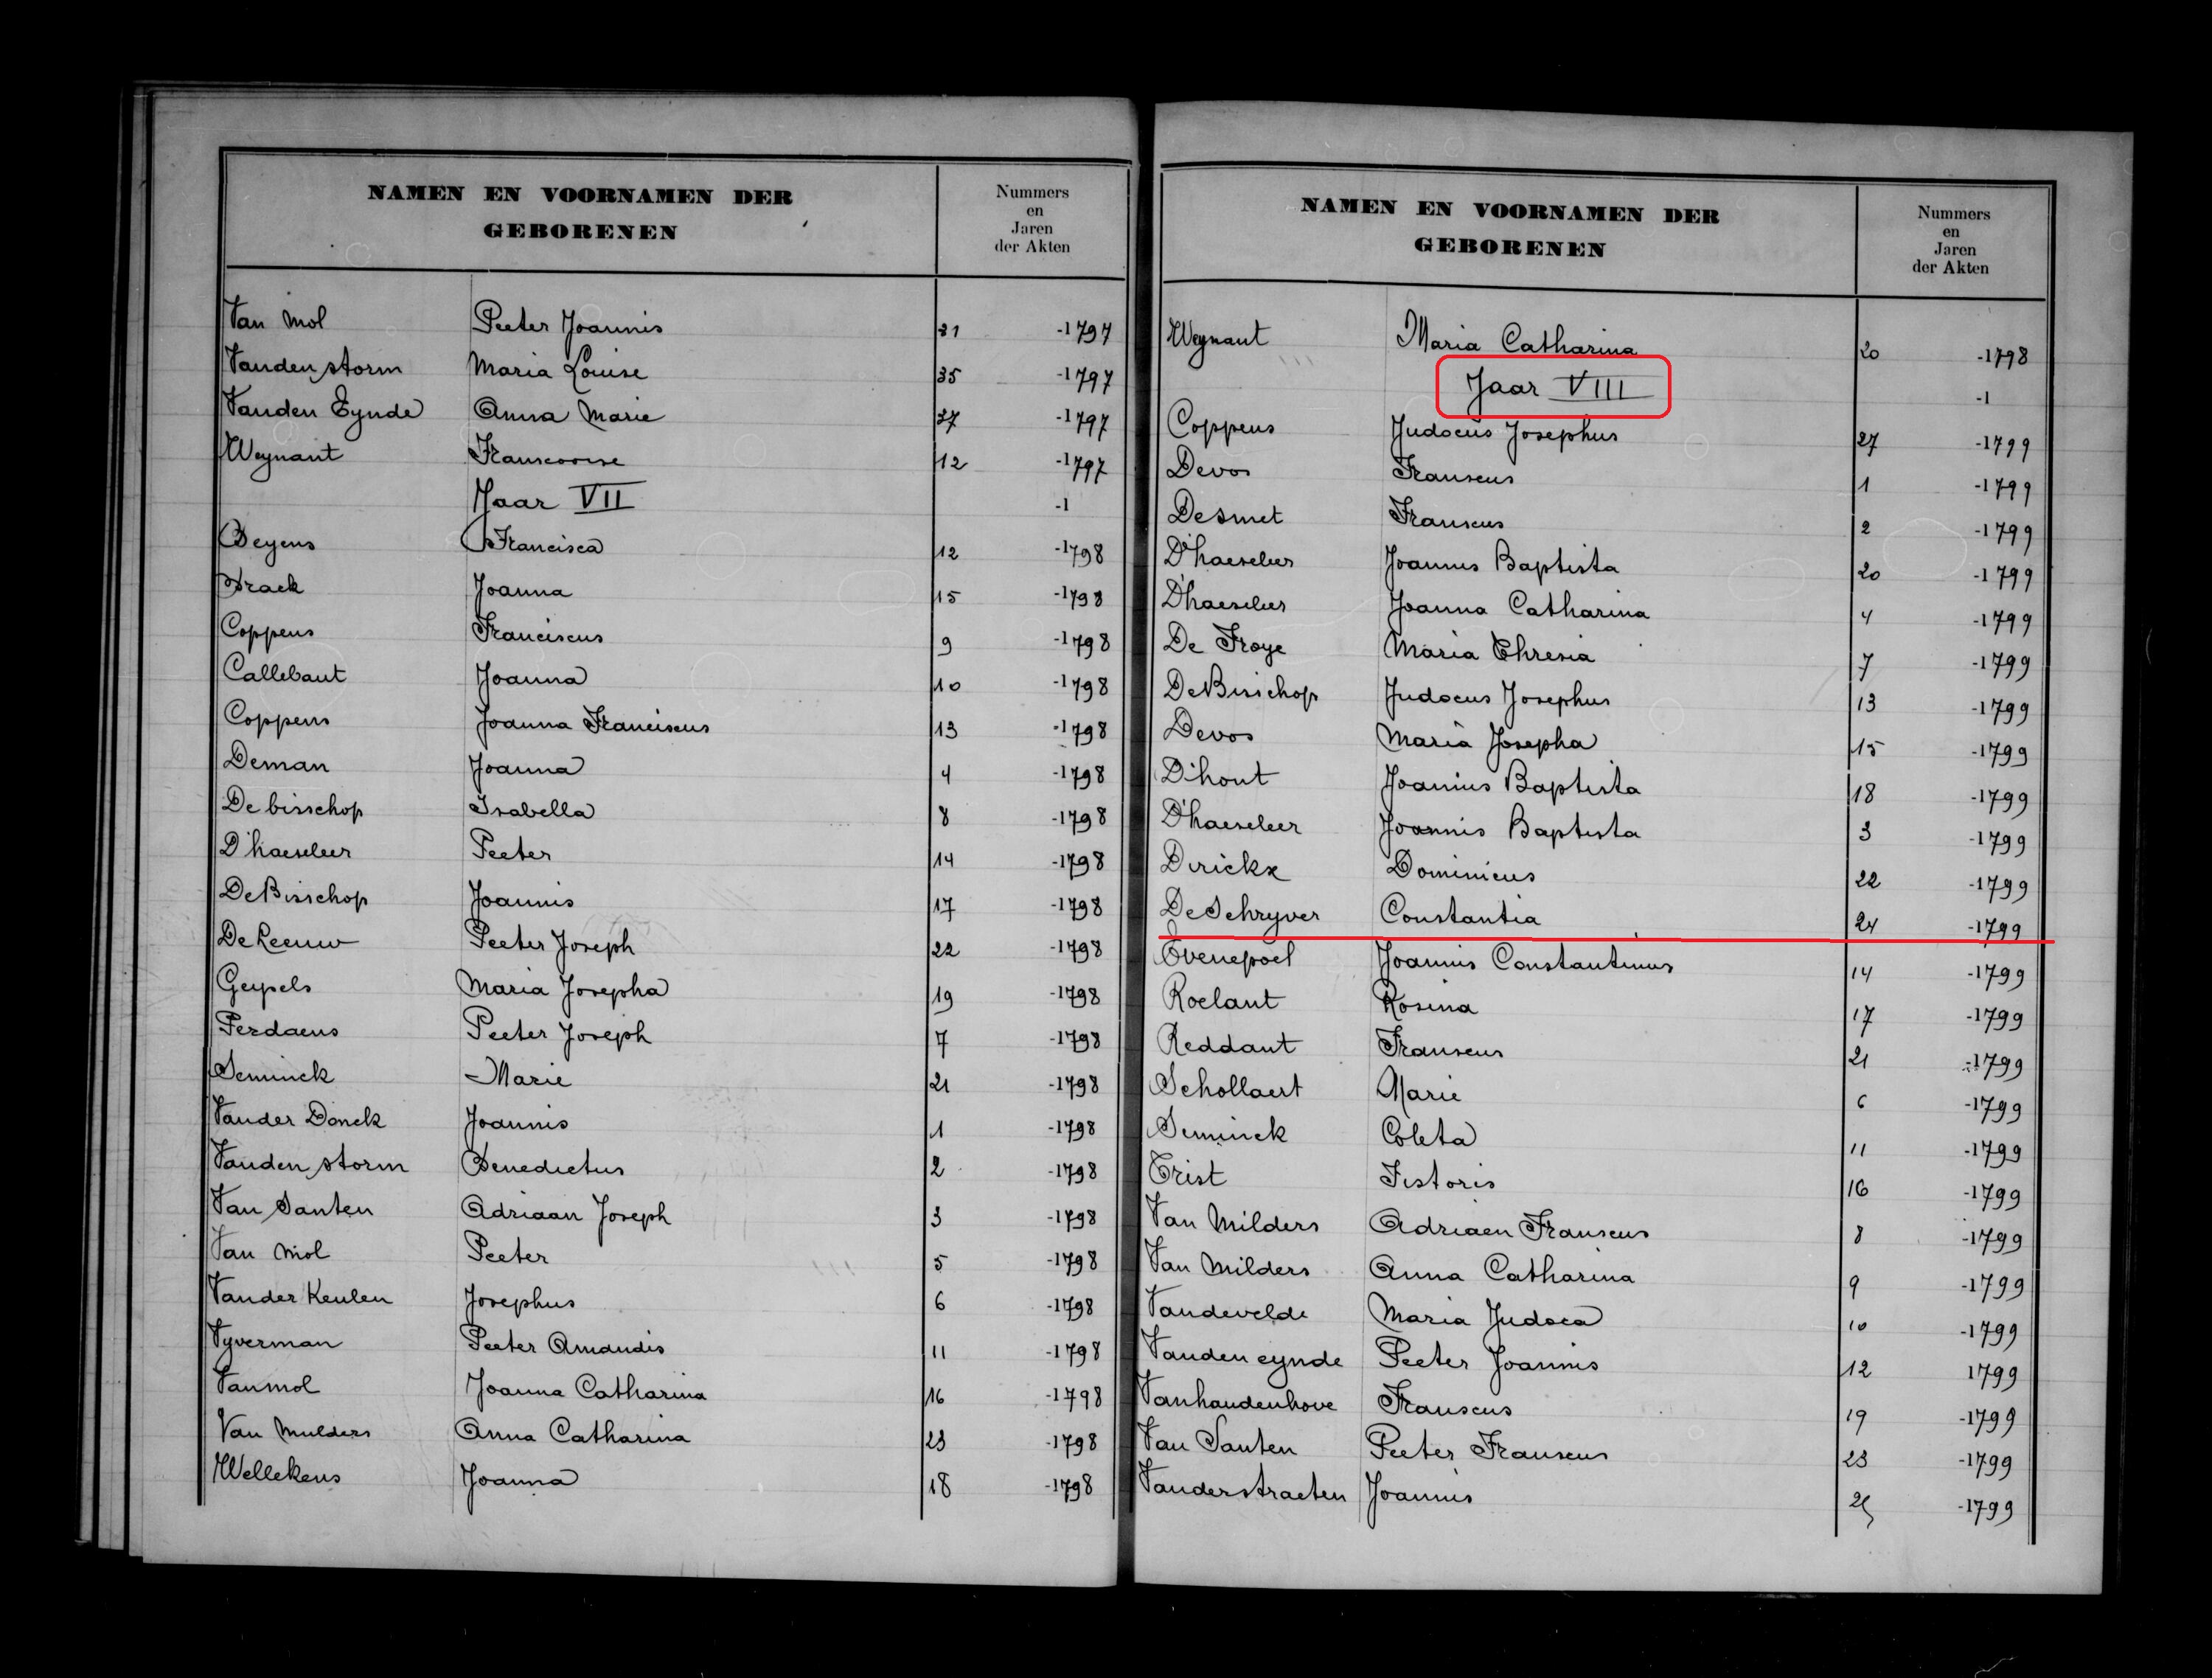 NAMEN EN VOORNAMEN DER
GEBORENEN
Nummers
en
Jaren
der Akten
Van Mol Peeter Joannis 31 -1797
Vanden storm Maria Louise 35 -1797
Vanden Eynde Anna Marie 37 -1797
Weynant Franscoise 12 -1797
Jaar VII -1
Beyens Francisca 12 -1798
Brack Joanna 15 -1798
Coppens Franciscus 9 -1798
Callebaut Joanna 10 -1798
Coppens Joanna Franciscus 13 -1798
Deman Joanna 4 -1798
De bisschop Isabella 8 -1798
D'haeseleer Peeter 14 -1798
DeBisschop Joannis 17 -1798
De Leeuw Peeter Joseph 22 -1798
Geypels Maria Josepha 19 -1798
Perdaens Peeter Joseph 7 -1798
Seminck Marie 21 -1798
Vander Donck Joannis 1 -1798
Vanden storm Benedictus 2 -1798
Van Santen Adriaan Joseph 3 -1798
Van Mol Peeter 5 -1798
Vander Keulen Josephus 6 -1798
Vyverman Peeter Amandis 11 -1798
Vanmol Joanna Catharina 16 -1798
Van Mulders Anna Catharina 23 -1798
Wellekens Joanna 18 -1798
NAMEN EN VOORNAMEN DER
GEBORENEN
Nummers
en
Jaren
der Akten
Weynant Maria Catharina 20 -1798
Jaar VIII -1
Coppens Judocus Josephus 27 -1799
Devos Franscus 1 -1799
Desmet Franscus 2 -1799
D'haeseleer Joannes Baptista 20 -1799
D'haeseleer Joanna Catharina 4 -1799
De Troye Maria Thresia 7 -1799
DeBisschop Judocus Josephus 13 -1799
Devos Maria Josepha 15 -1799
D'hont Joannus Baptista 18 -1799
D'haeseleer Joannis Baptista 3 -1799
Dirickx Dominicus 22 -1799
DeSchryver Constantia 24 -1799
Evenepoel Joannis Constantinus 14 -1799
Roelant Rosina 17 -1799
Reddant Franscus 21 -1799
Schollaert Marie 6 -1799
Seminck Coleta 11 -1799
Trist Fistoris 16 -1799
Van Milders Adriaen Franscus 8 -1799
Van Milders Anna Catharina 9 -1799
Vandevelde Maria Judoca 10 -1799
Vanden eynde Peeter Joannis 12 1799
Vanhaudenhove Franscus 19 -1799
Van Santen Peeter Franscus 23 -1799
Vanderstraeten Joannis 25 -1799